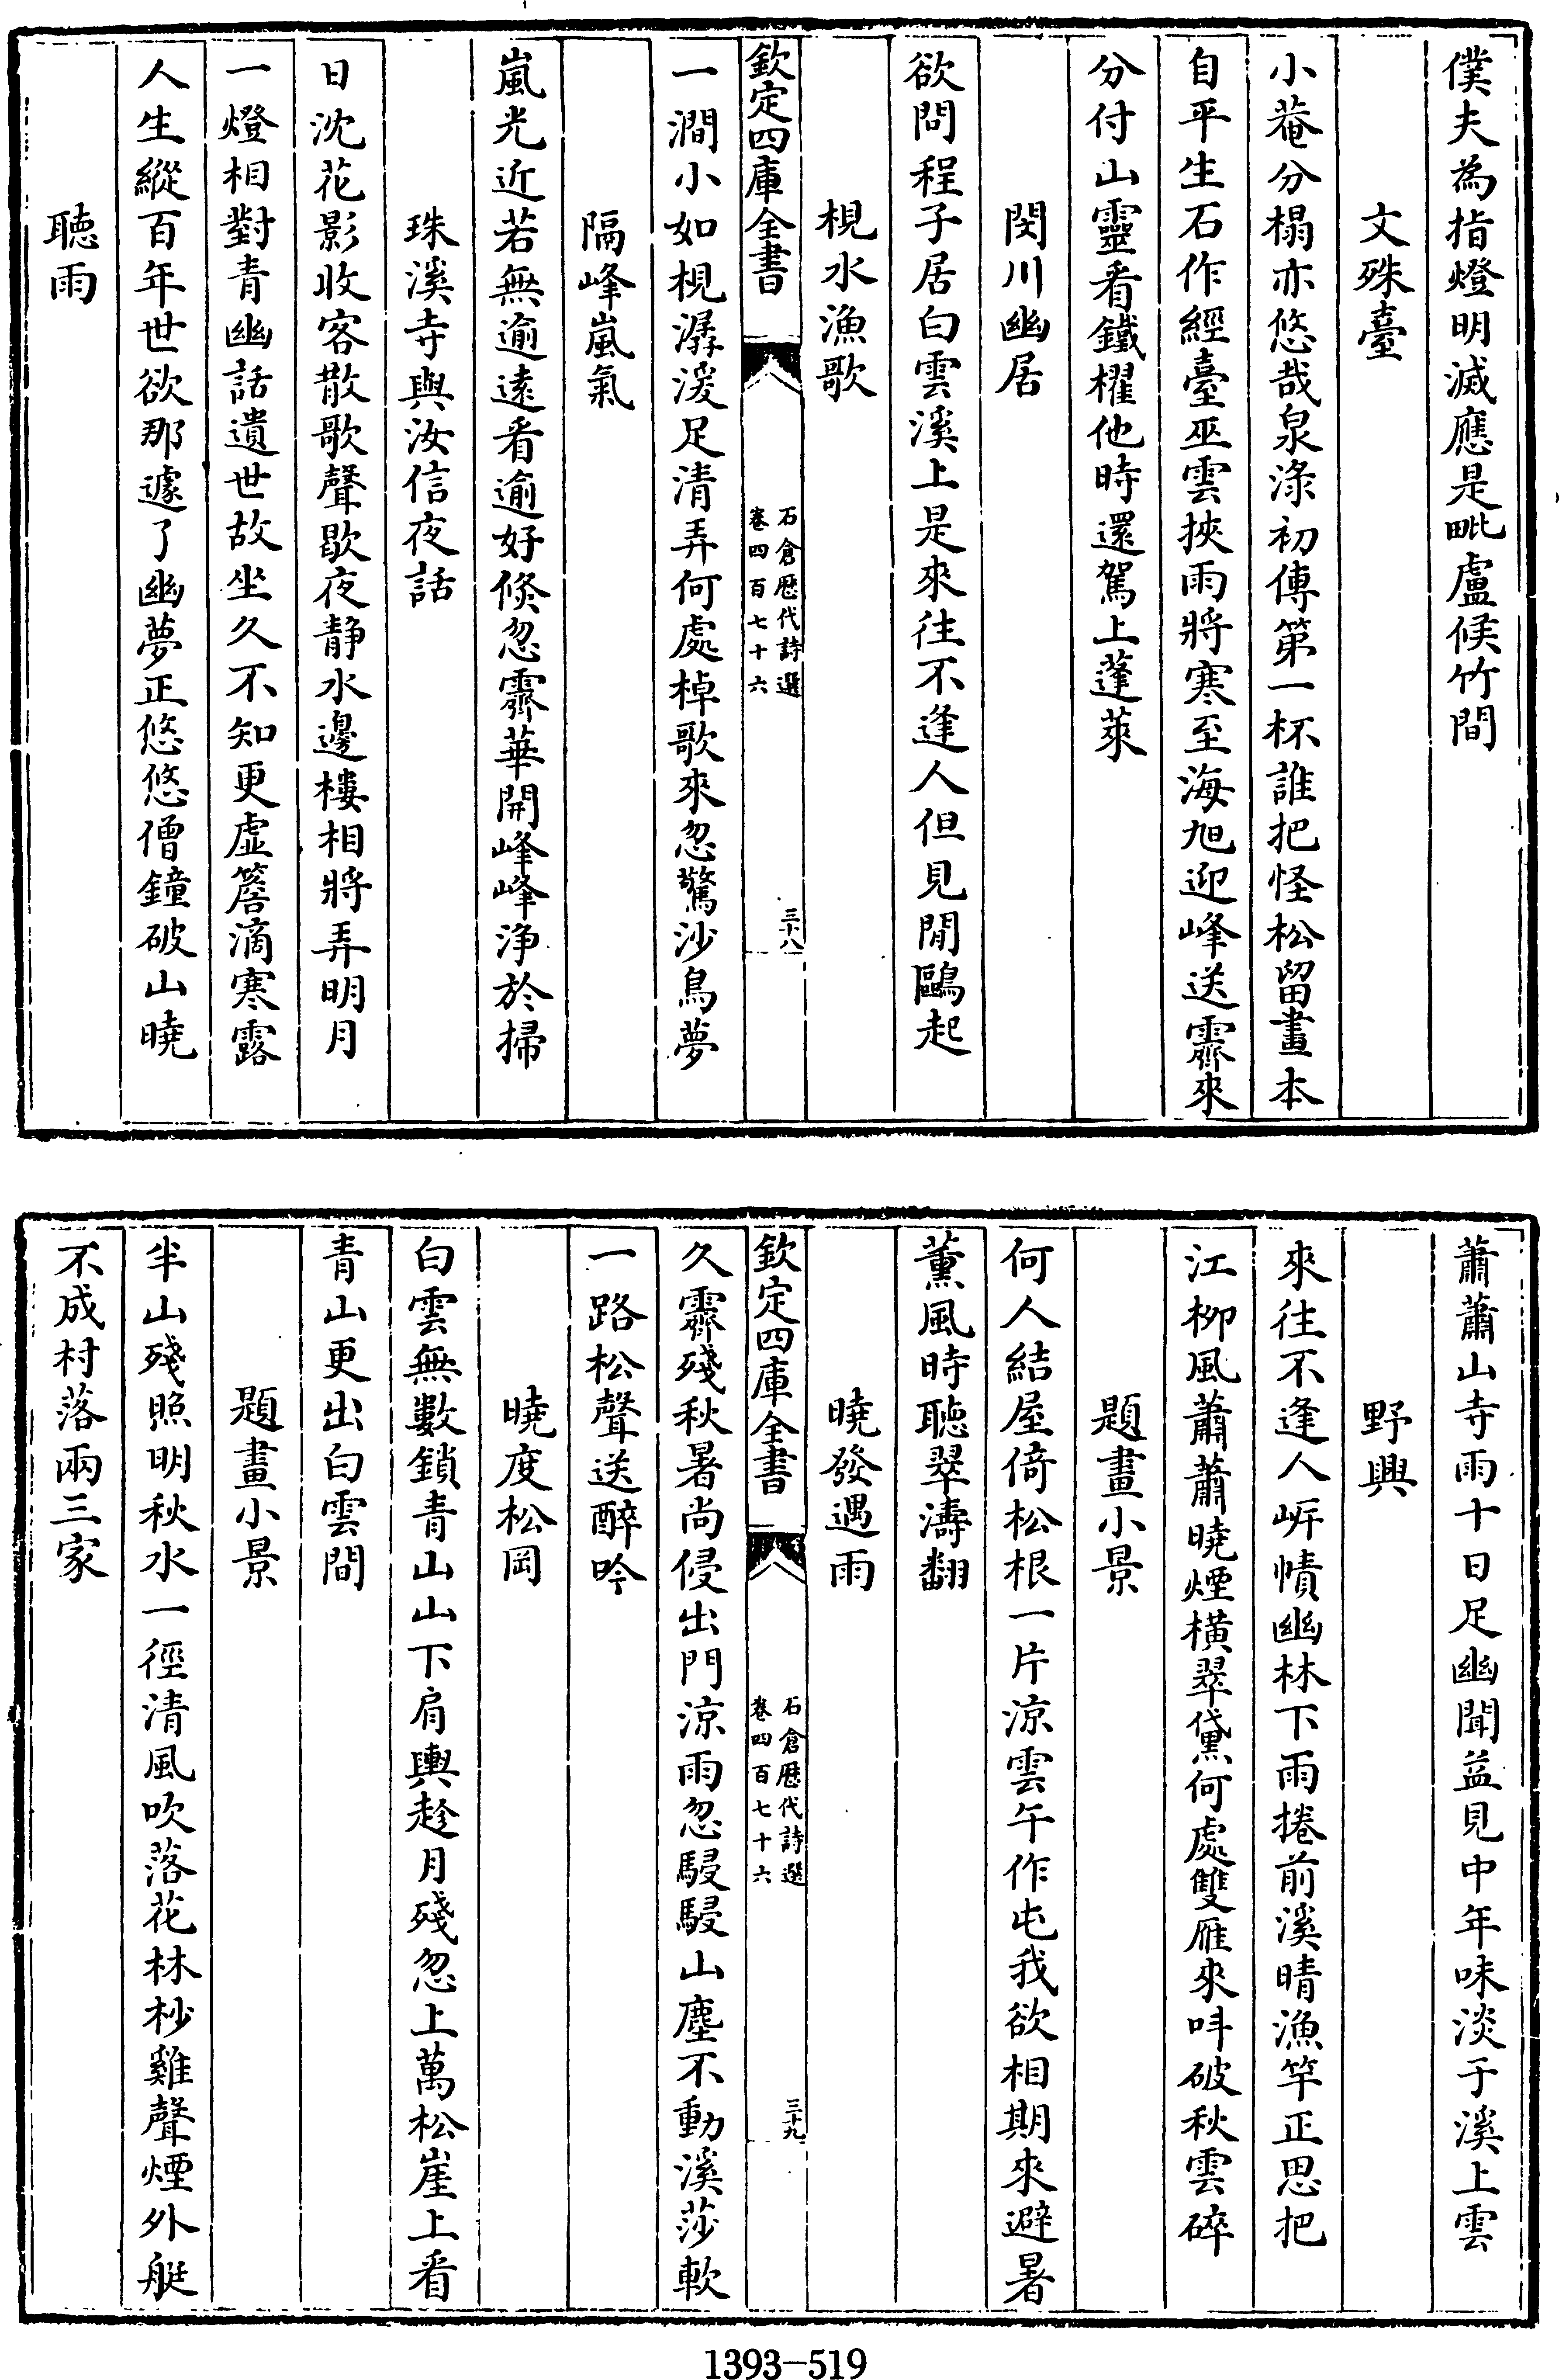 僕夫為指燈明滅應是毗盧候竹間
文殊臺
小菴分榻亦悠哉泉淥初傳第一杯誰把怪松留畫本
自平生石作經臺巫雲挾雨將寒至海旭迎峰送霽來
分付山靈看鐵櫂他時還駕上蓬萊
閔川幽居
欲問程子居白雲溪上是來往不逢人但見閒鷗起
梘水漁歌
欽定四庫全書
石倉歷代詩選
卷四百七十六
三十八
一澗小如梘潺湲足清弄何處棹歌來忽驚沙鳥夢
隔峰嵐氣
嵐光近若無逾遠看逾好倏忽霽華開峰峰淨於掃
珠溪寺與汝信夜話
日沈花影收客散歌聲歇夜静水邊樓相將弄明月
一燈相對青幽話遺世故坐久不知更虛簷滴寒露
人生縱百年世欲那遽了幽夢正悠悠僧鐘破山曉
聽雨
蕭蕭山寺雨十日足幽聞益見中年味淡于溪上雲
野興
來往不逢人岸幘幽林下雨捲前溪晴漁竿正思把
江柳風蕭蕭曉煙橫翠黛何處雙雁來呌破秋雲碎
題畫小景
何人結屋倚松根一片涼雲午作屯我欲相期來避暑
薰風時聽翠濤翻
曉發遇雨
欽定四庫全書
石倉歷代詩選
卷四百七十六
三十九
久霽殘秋暑尚侵出門涼雨忽駸駸山塵不動溪莎軟
一路松聲送醉吟
曉度松岡
白雲無數鎖青山山下肩輿趁月殘忽上萬松崖上看
青山更出白雲間
題畫小景
半山殘照明秋水一徑清風吹落花林杪雞聲煙外艇
不成村落兩三家
1393-519